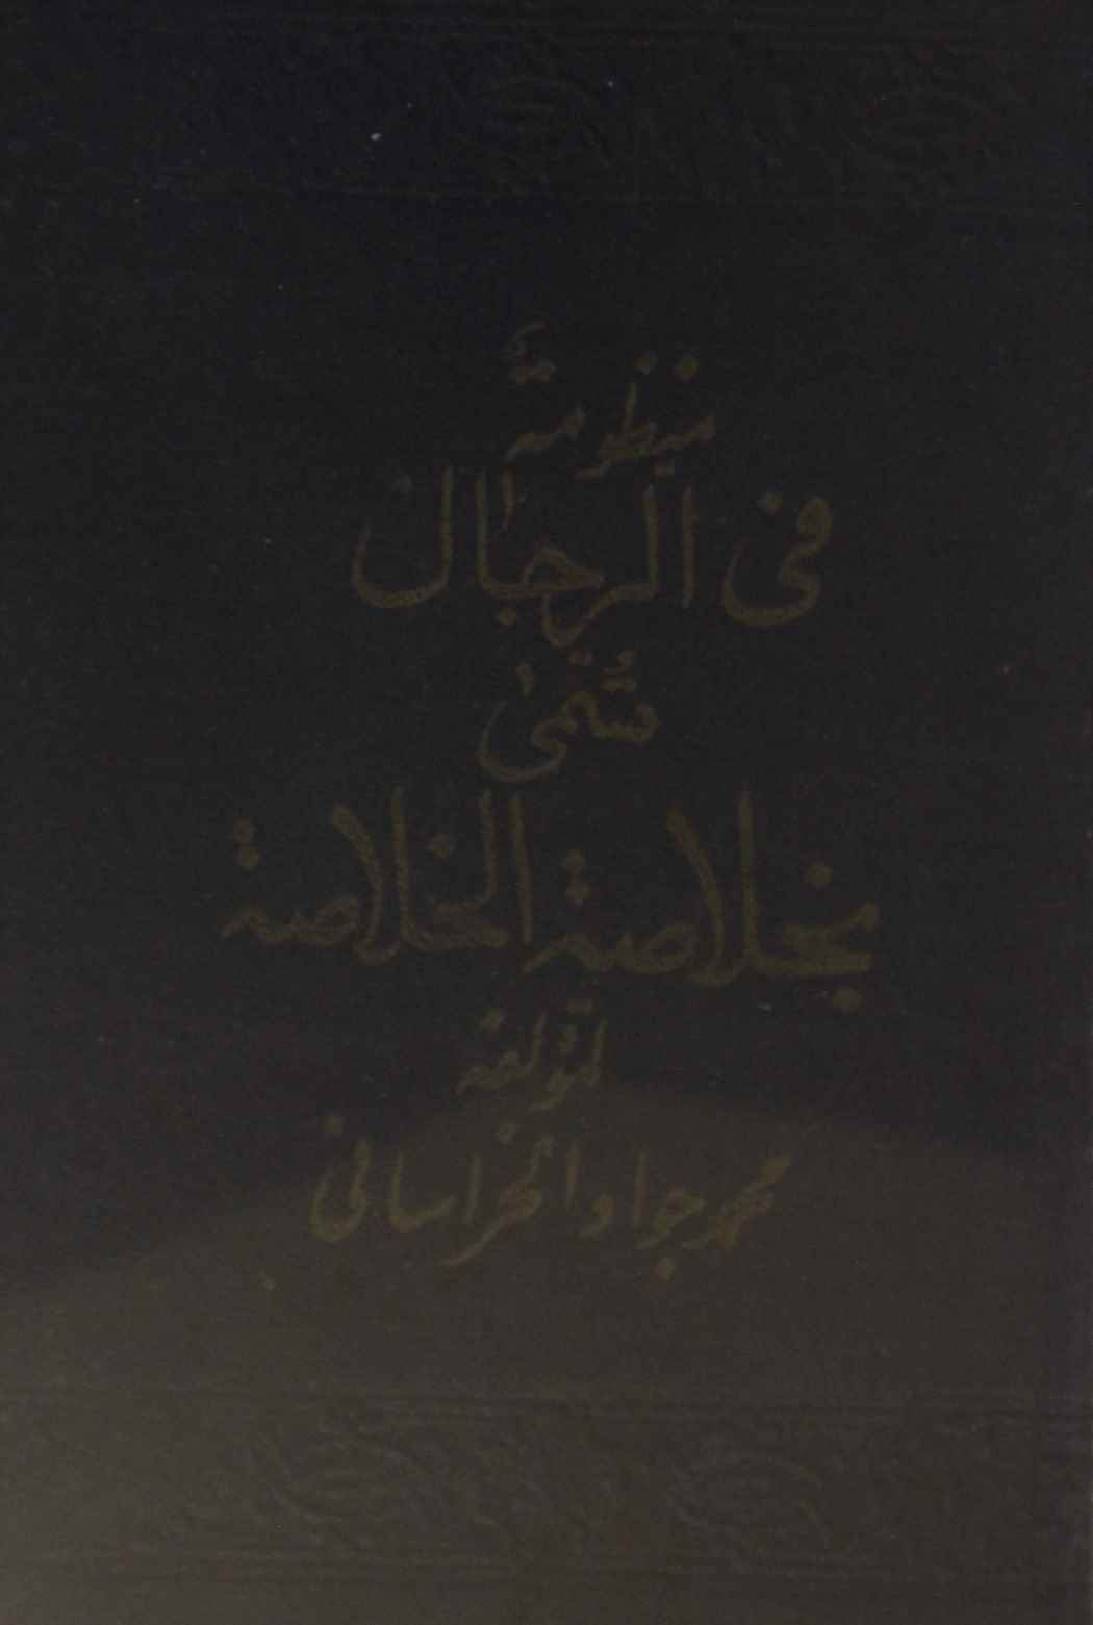 منظومة
فى الرجال
تسمى
بخلاصة الخلاصة
لمؤلفه
محمد جواد الخراسانى